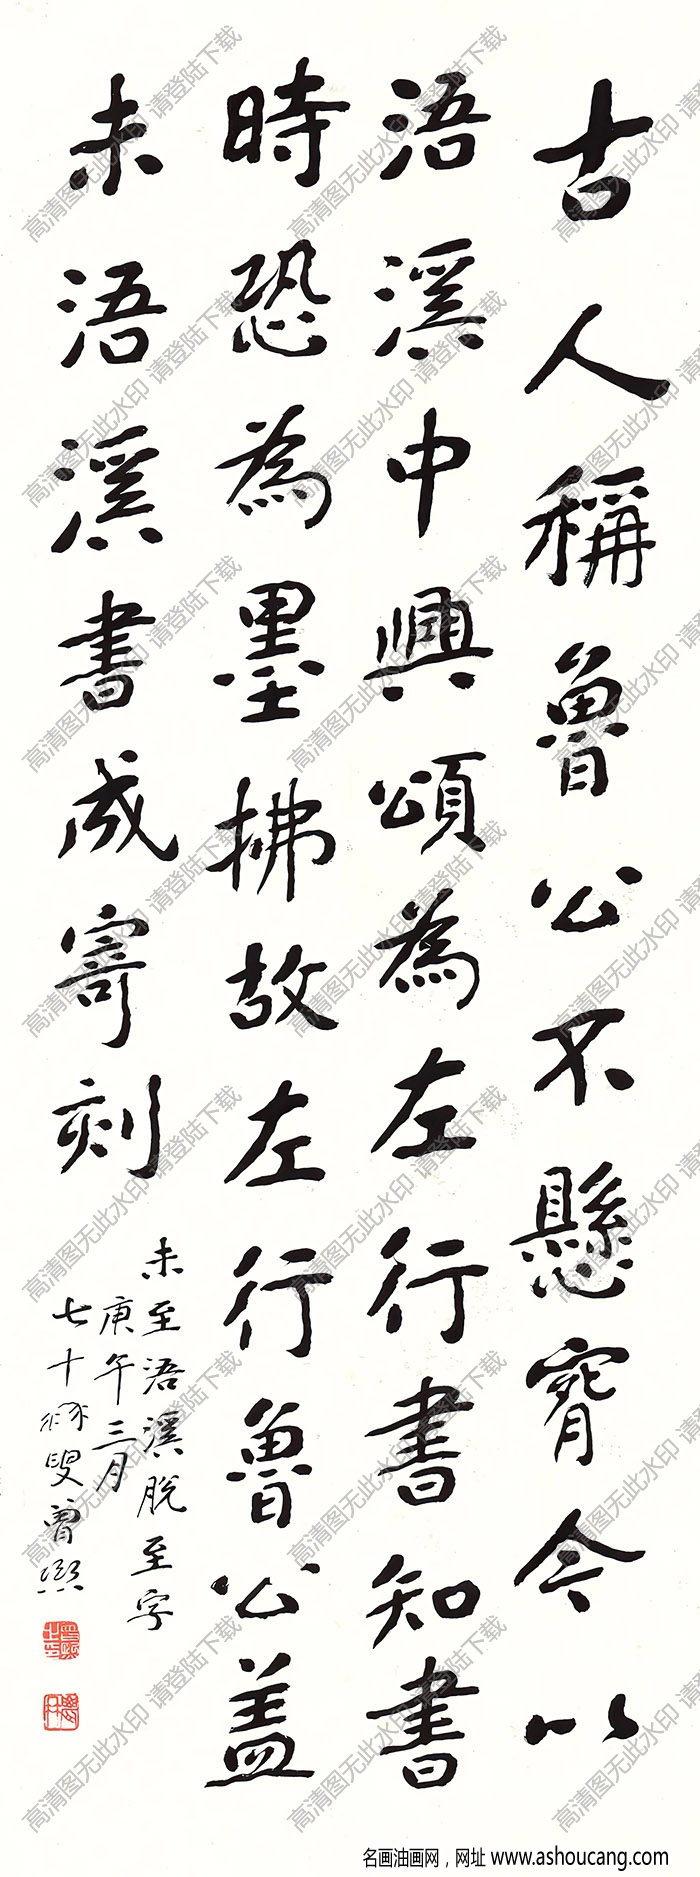 古人稱魯公不懸𦘕今以
浯溪中興頌為左行書知書
時恐為墨拂故左行魯公蓋
未浯溪書成寄刻
未至浯溪脫至字
庚午三月
七十叟曾熙
高清图无此水印 请登陆下载
名画油画网，网址 www.ashoucang.com